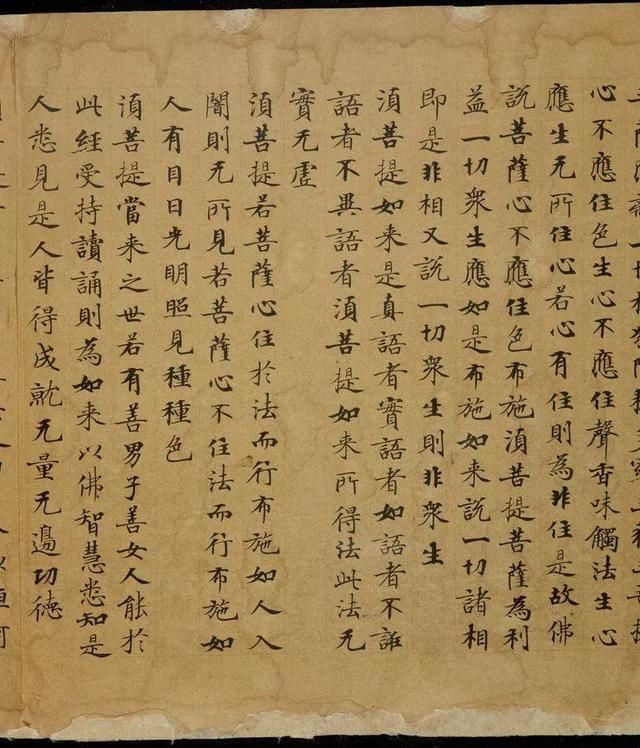 一切相
心不應住色生心不應住聲香味觸法生心
應生无所住心若心有住則為非住是故佛
說菩薩心不應住色布施湏菩提菩薩為利
益一切衆生應如是布施如来說一切諸相
即是非相又說一切衆生則非衆生
湏菩提如来是真語者實語者如語者不誑
語者不異語者湏菩提如来所得法此法无
實无虛
湏菩提若菩薩心住於法而行布施如人入
闇則无所見若菩薩心不住法而行布施如
人有目日光明照見種種色
湏菩提當来之世若有善男子善女人能於
此經受持讀誦則為如来以佛智慧悉知是
人悉見是人皆得成就无量无邊功德